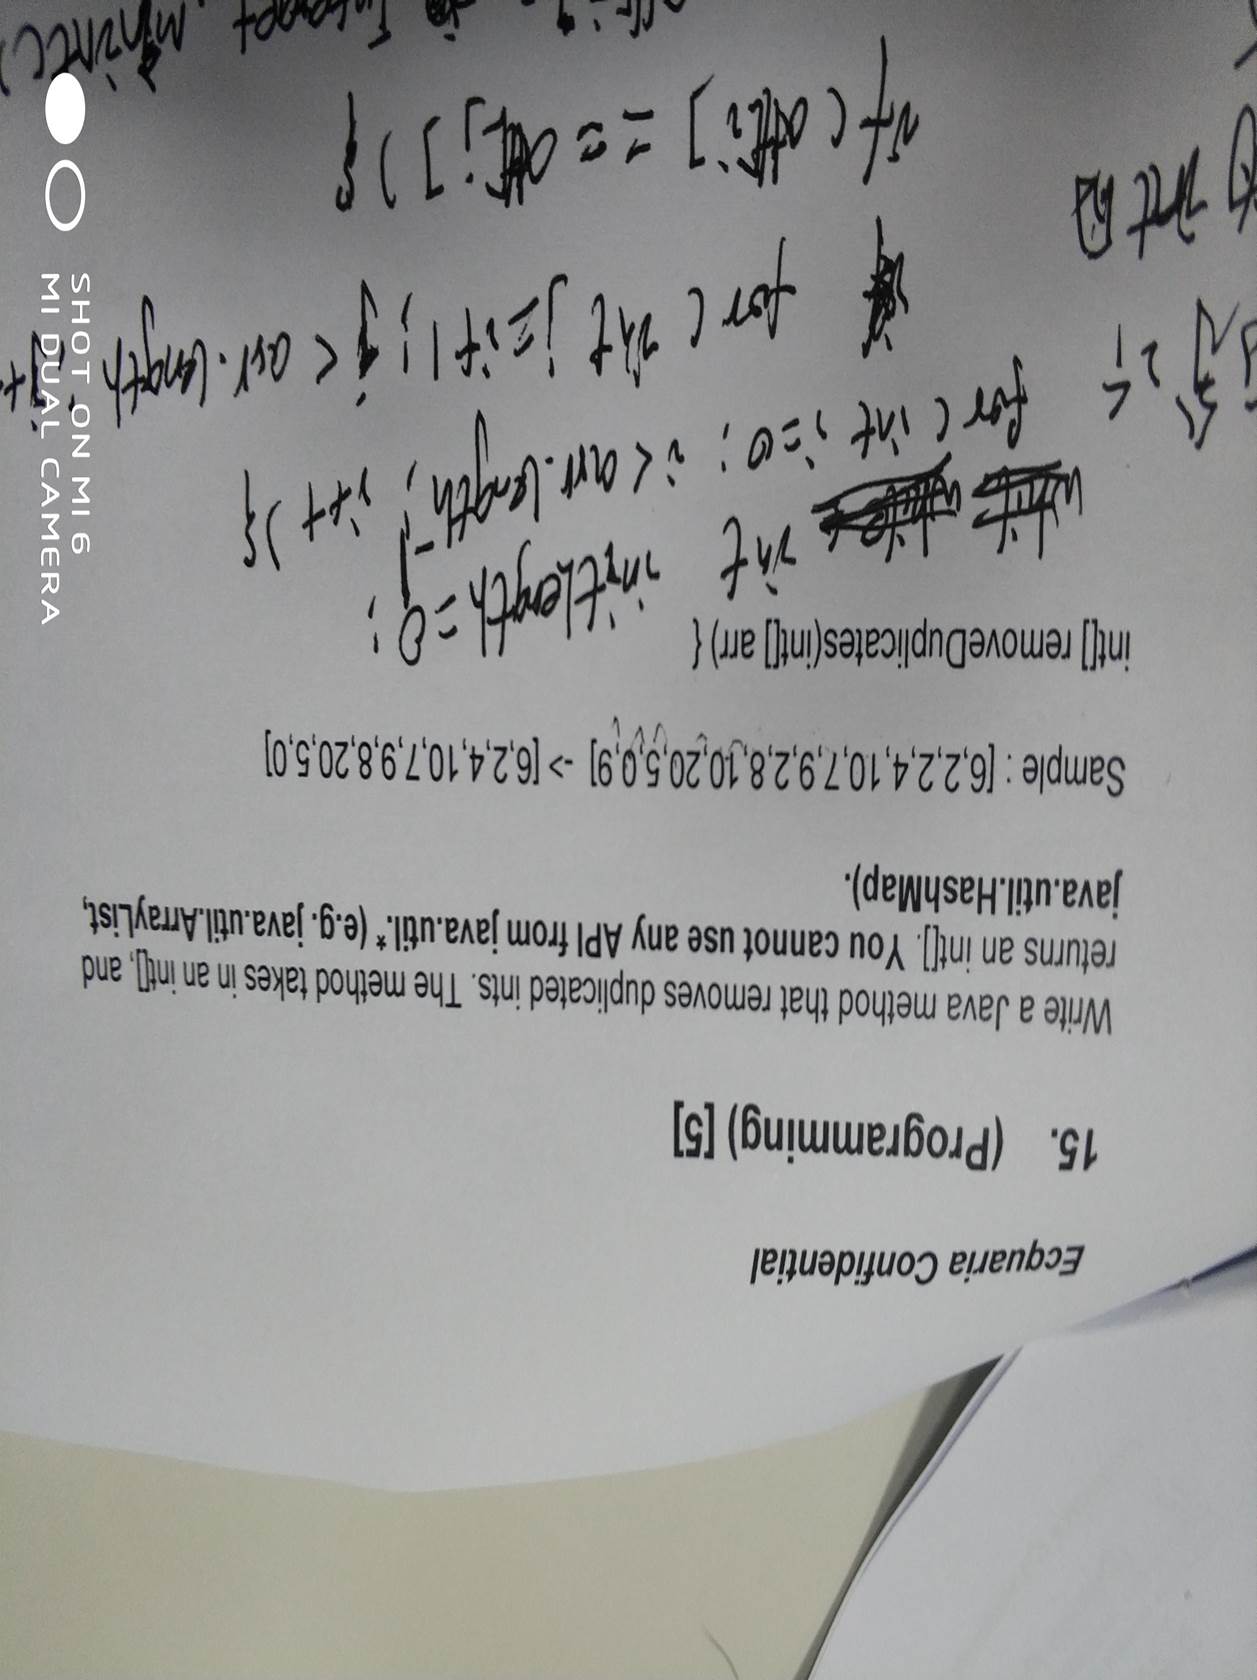 Ecquaria Confidential
15. (Programming) [5]
Write a Java method that removes duplicated ints. The method takes in an int[], and
returns an int[]. You cannot use any API from java.util.* (e.g. java.util.ArrayList,
java.util.HashMap).
Sample : [6,2,2,4,10,7,9,2,8,10,20,5,0,9] -> [6,2,4,10,7,9,8,20,5,0]
int[] removeDuplicates(int[] arr) {
int intLength = 0;
for ( int i=0; i < arr.length -1; i++ ) {
for ( int j=i+1; j < arr.length; j++
if ( arr[i] == arr[j] ) {
SHOT ON MI 6
MI DUAL CAMERA